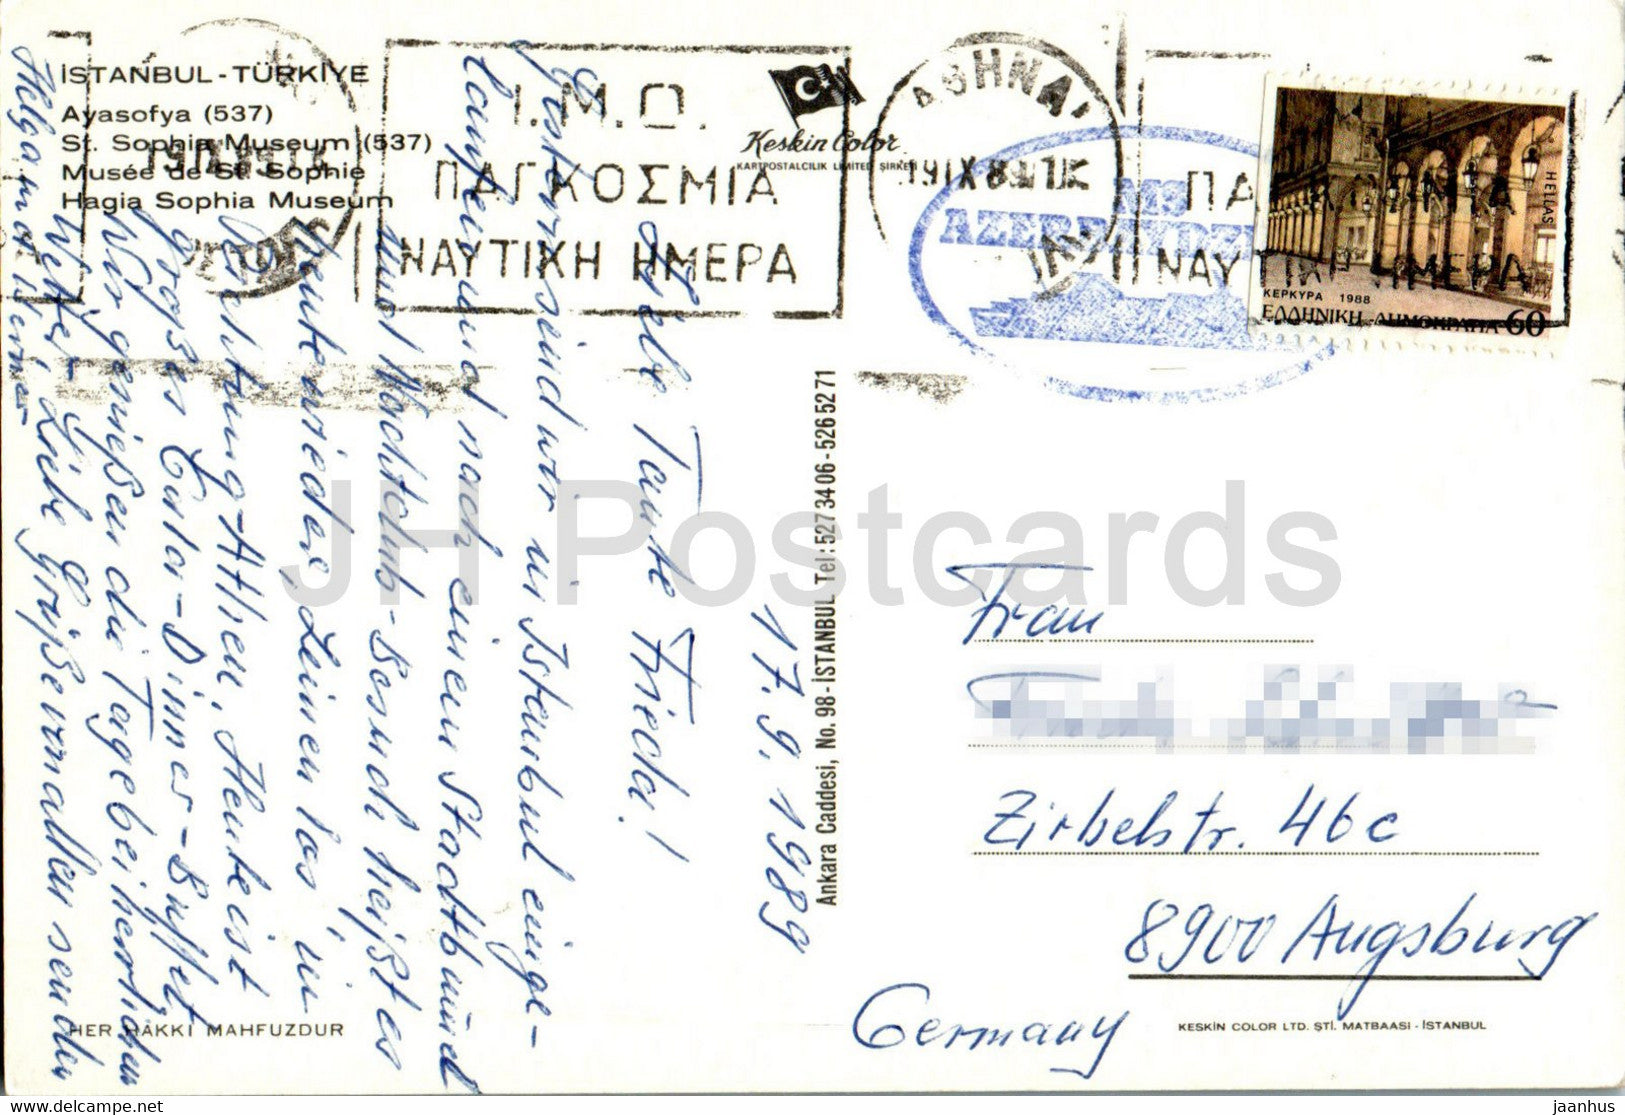 İSTANBUL - TÜRKİYE
Ayasofya (537)
St. Sophia Museum (537)
Musée de St. Sophie
Hagia Sophia Museum
I.M.O.
ΠΑΓΚΟΣΜΙΑ
ΝΑΥΤΙΚΗ ΗΜΕΡΑ
Keskin Color
KARTPOSTALCILIK LIMITED ŞIRKETI
ΑΘΗΝΑΙ
19 IX 89
MS
HELLAS
ΚΕΡΚΥΡΑ 1988
ΕΛΛΗΝΙΚΗ ΔΗΜΟΚΡΑΤΙΑ 60
17.9.1989
Liebe Tante Frieda!
Gestern sind wir in Istanbul einge-
laufen und nach einem Stadtbummel
und Nachtclub-Besuch heißt es
heute wieder „Leinen los" in
Richtung Athen. Heute ist
großes Gala-Dinner-Büffet
Wir genießen die Tage bei herrlichem
Wetter. Liebe Grüße von allen senden
Helga und Werner
Ankara Caddesi, No. 98 - İSTANBUL Tel: 527 34 06 - 526 52 71
Frau
Zirbelstr. 46c
8900 Augsburg
Germany
HER HAKKI MAHFUZDUR
KESKİN COLOR LTD. ŞTİ. MATBAASI - İSTANBUL
JH Postcards
jaanhus